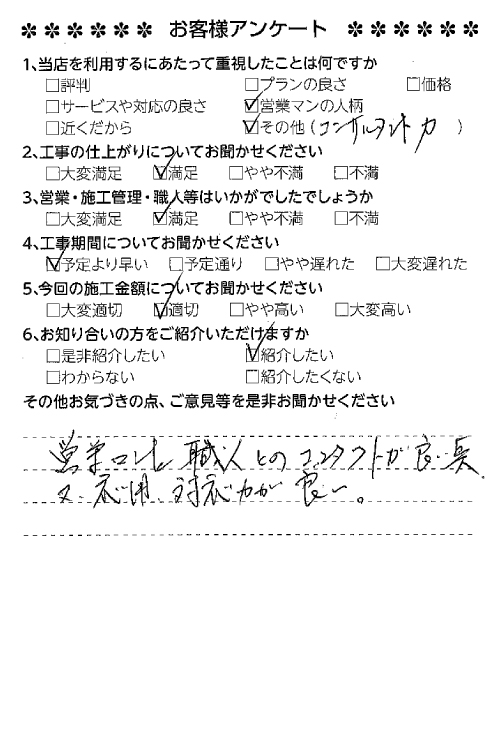 ✽✽✽✽✽✽ お客様アンケート ✽✽✽✽✽✽
1、当店を利用するにあたって重視したことは何ですか
□評判 □プランの良さ □価格
□サービスや対応の良さ ☑営業マンの人柄
□近くだから ☑その他(コンサルタント力)
2、工事の仕上がりについてお聞かせください
□大変満足 ☑満足 □やや不満 □不満
3、営業・施工管理・職人等はいかがでしたでしょうか
□大変満足 ☑満足 □やや不満 □不満
4、工事期間についてお聞かせください
☑予定より早い □予定通り □やや遅れた □大変遅れた
5、今回の施工金額についてお聞かせください
□大変適切 ☑適切 □やや高い □大変高い
6、お知り合いの方をご紹介いただけますか
□是非紹介したい ☑紹介したい
□わからない □紹介したくない
その他お気づきの点、ご意見等を是非お聞かせください
営業マンと職人とのコンタクトが良い点
又、応用、対応力が良い。